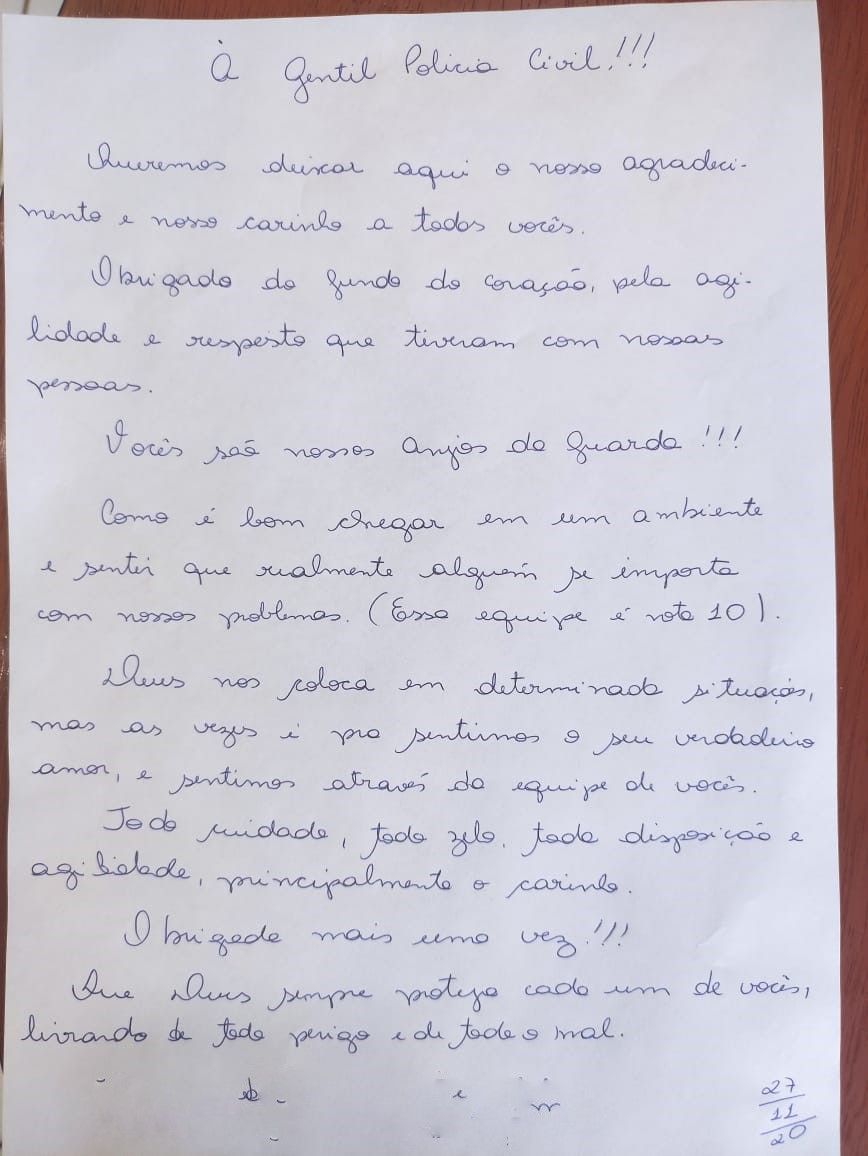 À Gentil Policia Civil!!!
Queremos deixar aqui o nosso agradeci-
mento e nosso carinho a todos vocês.
Obrigado do fundo do coração, pela agi-
lidade e respeito que tiveram com nossas
pessoas.
Vocês são nossos anjos da Guarda!!!
Como é bom chegar em um ambiente
e sentir que realmente alguém se importa
com nossos problemas. (Essa equipe é nota 10).
Deus nos coloca em determinada situação,
mas as vezes é pra sentirmos o seu verdadeiro
amor, e sentimos através da equipe de vocês.
Todo cuidado, todo zelo, toda disposição e
agilidade, principalmente o carinho.
Obrigada mais uma vez!!!
Que Deus sempre proteja cada um de vocês,
livrando de todo perigo e de todo o mal.
27
11
20